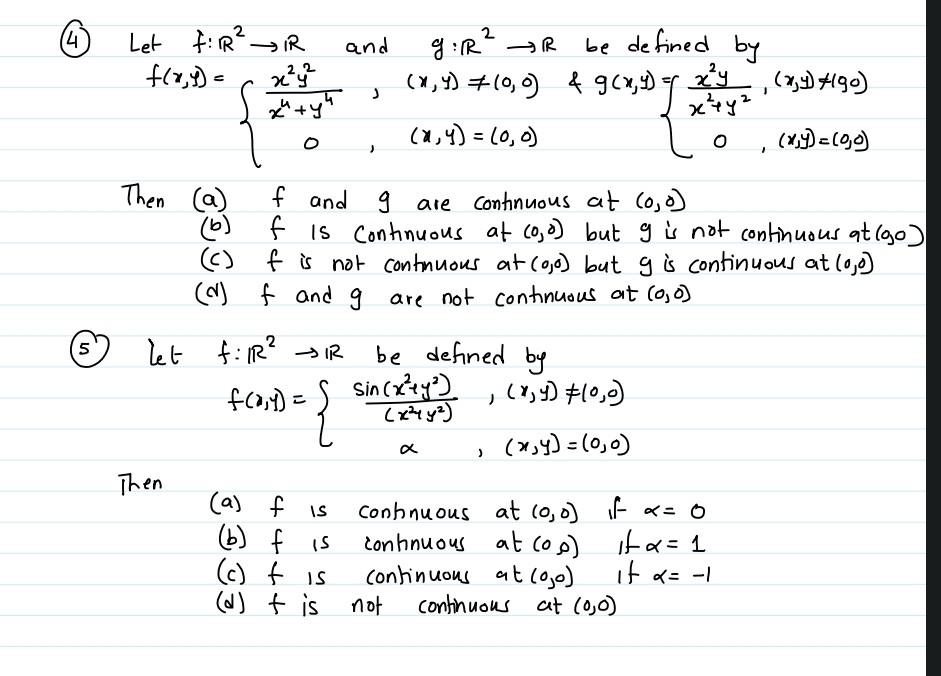 ④ Let f:ℝ² → ℝ and g:ℝ² → ℝ be defined by
f(x,y) = { x²y² / (x⁴+y⁴) , (x,y) ≠ (0,0) & g(x,y) = { x²y / (x²+y²) , (x,y) ≠ (0,0)
0 , (x,y) = (0,0) 0 , (x,y) = (0,0)
Then (a) f and g are continuous at (0,0)
(b) f is continuous at (0,0) but g is not continuous at (0,0)
(c) f is not continuous at (0,0) but g is continuous at (0,0)
(d) f and g are not continuous at (0,0)
⑤ Let f:ℝ² → ℝ be defined by
f(x,y) = { sin(x²+y²) / (x²+y²) , (x,y) ≠ (0,0)
α , (x,y) = (0,0)
Then
(a) f is continuous at (0,0) if α = 0
(b) f is continuous at (0,0) if α = 1
(c) f is continuous at (0,0) if α = -1
(d) f is not continuous at (0,0)